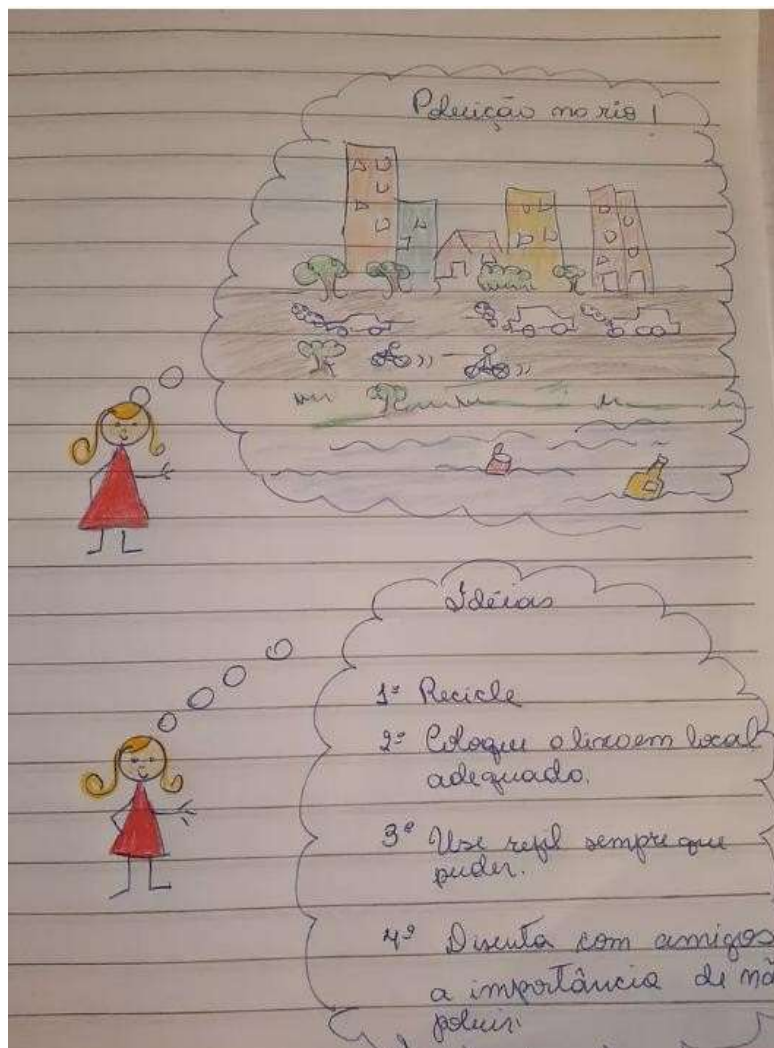 Poluição no rio!
Idéias
1º Recicle
2º Coloque o lixo em local
adequado.
3º Use refil sempre que
puder.
4º Discuta com amigos
a importância de nã
poluir.